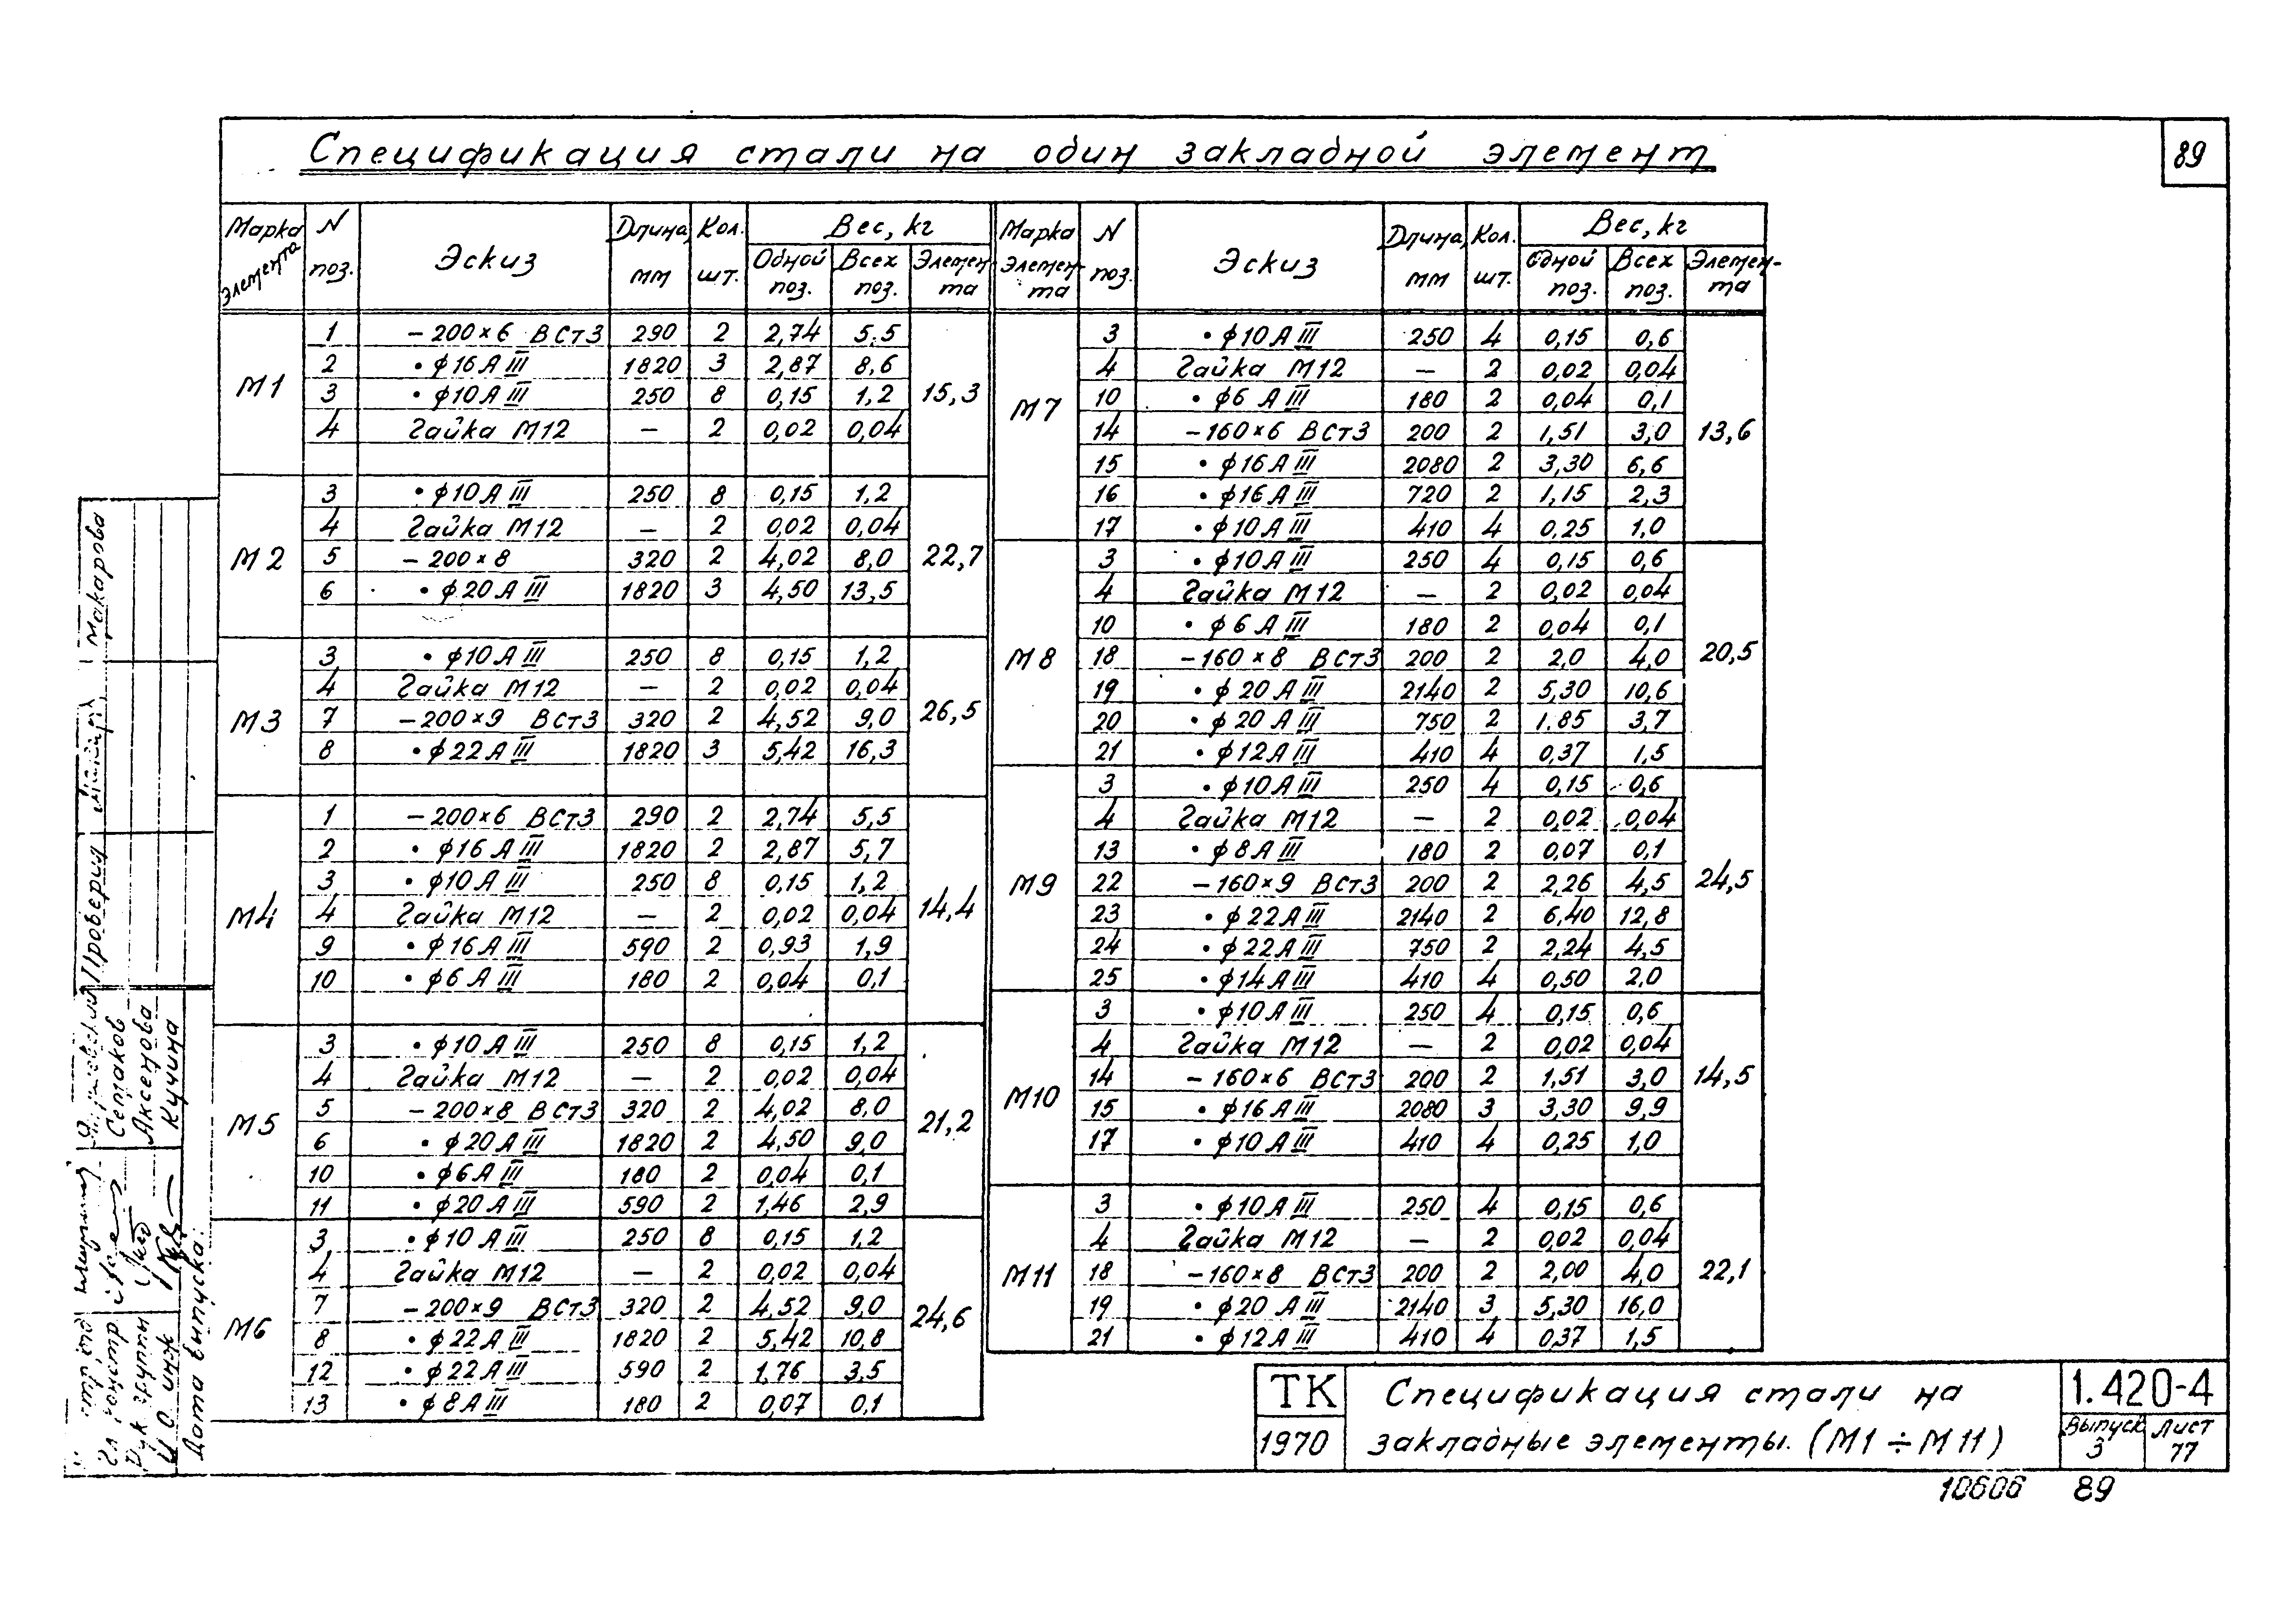 89
Спецификация стали на один закладной элемент
Марка элемента | N поз. | Эскиз | Длина, мм | Кол. шт. | Вес, кг
Одной поз. | Всех поз. | Элемента
М1
1 | -200×6 ВСт3 | 290 | 2 | 2,74 | 5,5
2 | •ϕ16АIII | 1820 | 3 | 2,87 | 8,6
3 | •ϕ10АIII | 250 | 8 | 0,15 | 1,2 | 15,3
4 | Гайка М12 | — | 2 | 0,02 | 0,04
М2
3 | •ϕ10АIII | 250 | 8 | 0,15 | 1,2
4 | Гайка М12 | — | 2 | 0,02 | 0,04
5 | -200×8 | 320 | 2 | 4,02 | 8,0 | 22,7
6 | •ϕ20АIII | 1820 | 3 | 4,50 | 13,5
М3
3 | •ϕ10АIII | 250 | 8 | 0,15 | 1,2
4 | Гайка М12 | — | 2 | 0,02 | 0,04
7 | -200×9 ВСт3 | 320 | 2 | 4,52 | 9,0 | 26,5
8 | •ϕ22АIII | 1820 | 3 | 5,42 | 16,3
М4
1 | -200×6 ВСт3 | 290 | 2 | 2,74 | 5,5
2 | •ϕ16АIII | 1820 | 2 | 2,87 | 5,7
3 | •ϕ10АIII | 250 | 8 | 0,15 | 1,2
4 | Гайка М12 | — | 2 | 0,02 | 0,04 | 14,4
9 | •ϕ16АIII | 590 | 2 | 0,93 | 1,9
10 | •ϕ6АIII | 180 | 2 | 0,04 | 0,1
М5
3 | •ϕ10АIII | 250 | 8 | 0,15 | 1,2
4 | Гайка М12 | — | 2 | 0,02 | 0,04
5 | -200×8 ВСт3 | 320 | 2 | 4,02 | 8,0 | 21,2
6 | •ϕ20АIII | 1820 | 2 | 4,50 | 9,0
10 | •ϕ6АIII | 180 | 2 | 0,04 | 0,1
11 | •ϕ20АIII | 590 | 2 | 1,46 | 2,9
М6
3 | •ϕ10АIII | 250 | 8 | 0,15 | 1,2
4 | Гайка М12 | — | 2 | 0,02 | 0,04
7 | -200×9 ВСт3 | 320 | 2 | 4,52 | 9,0 | 24,6
8 | •ϕ22АIII | 1820 | 2 | 5,42 | 10,8
12 | •ϕ22АIII | 590 | 2 | 1,76 | 3,5
13 | •ϕ8АIII | 180 | 2 | 0,07 | 0,1
Марка элемента | N поз. | Эскиз | Длина, мм | Кол. шт. | Вес, кг
Одной поз. | Всех поз. | Элемен-та
М7
3 | •ϕ10АIII | 250 | 4 | 0,15 | 0,6
4 | Гайка М12 | — | 2 | 0,02 | 0,04
10 | •ϕ6АIII | 180 | 2 | 0,04 | 0,1
14 | -160×6 ВСт3 | 200 | 2 | 1,51 | 3,0 | 13,6
15 | •ϕ16АIII | 2080 | 2 | 3,30 | 6,6
16 | •ϕ16АIII | 720 | 2 | 1,15 | 2,3
17 | •ϕ10АIII | 410 | 4 | 0,25 | 1,0
М8
3 | •ϕ10АIII | 250 | 4 | 0,15 | 0,6
4 | Гайка М12 | — | 2 | 0,02 | 0,04
10 | •ϕ6АIII | 180 | 2 | 0,04 | 0,1
18 | -160×8 ВСт3 | 200 | 2 | 2,0 | 4,0 | 20,5
19 | •ϕ20АIII | 2140 | 2 | 5,30 | 10,6
20 | •ϕ20АIII | 750 | 2 | 1.85 | 3,7
21 | •ϕ12АIII | 410 | 4 | 0,37 | 1,5
М9
3 | •ϕ10АIII | 250 | 4 | 0,15 | 0,6
4 | Гайка М12 | — | 2 | 0,02 | 0,04
13 | •ϕ8АIII | 180 | 2 | 0,07 | 0,1
22 | -160×9 ВСт3 | 200 | 2 | 2,26 | 4,5 | 24,5
23 | •ϕ22АIII | 2140 | 2 | 6,40 | 12,8
24 | •ϕ22АIII | 750 | 2 | 2,24 | 4,5
25 | •ϕ14АIII | 410 | 4 | 0,50 | 2,0
М10
3 | •ϕ10АIII | 250 | 4 | 0,15 | 0,6
4 | Гайка М12 | — | 2 | 0,02 | 0,04
14 | -160×6 ВСт3 | 200 | 2 | 1,51 | 3,0 | 14,5
15 | •ϕ16АIII | 2080 | 3 | 3,30 | 9,9
17 | •ϕ10АIII | 410 | 4 | 0,25 | 1,0
М11
3 | •ϕ10АIII | 250 | 4 | 0,15 | 0,6
4 | Гайка М12 | — | 2 | 0,02 | 0,04
18 | -160×8 ВСт3 | 200 | 2 | 2,00 | 4,0 | 22,1
19 | •ϕ20АIII | 2140 | 3 | 5,30 | 16,0
21 | •ϕ12АIII | 410 | 4 | 0,37 | 1,5
Проверил Макарова
Семаков
Аксенова
Кучина
Гл. констр.
Рук. группы
Дата выпуска:
ТК
1970
Спецификация стали на
закладные элементы. (М1÷М11)
1.420-4
Выпуск 3
Лист 77
10606 89